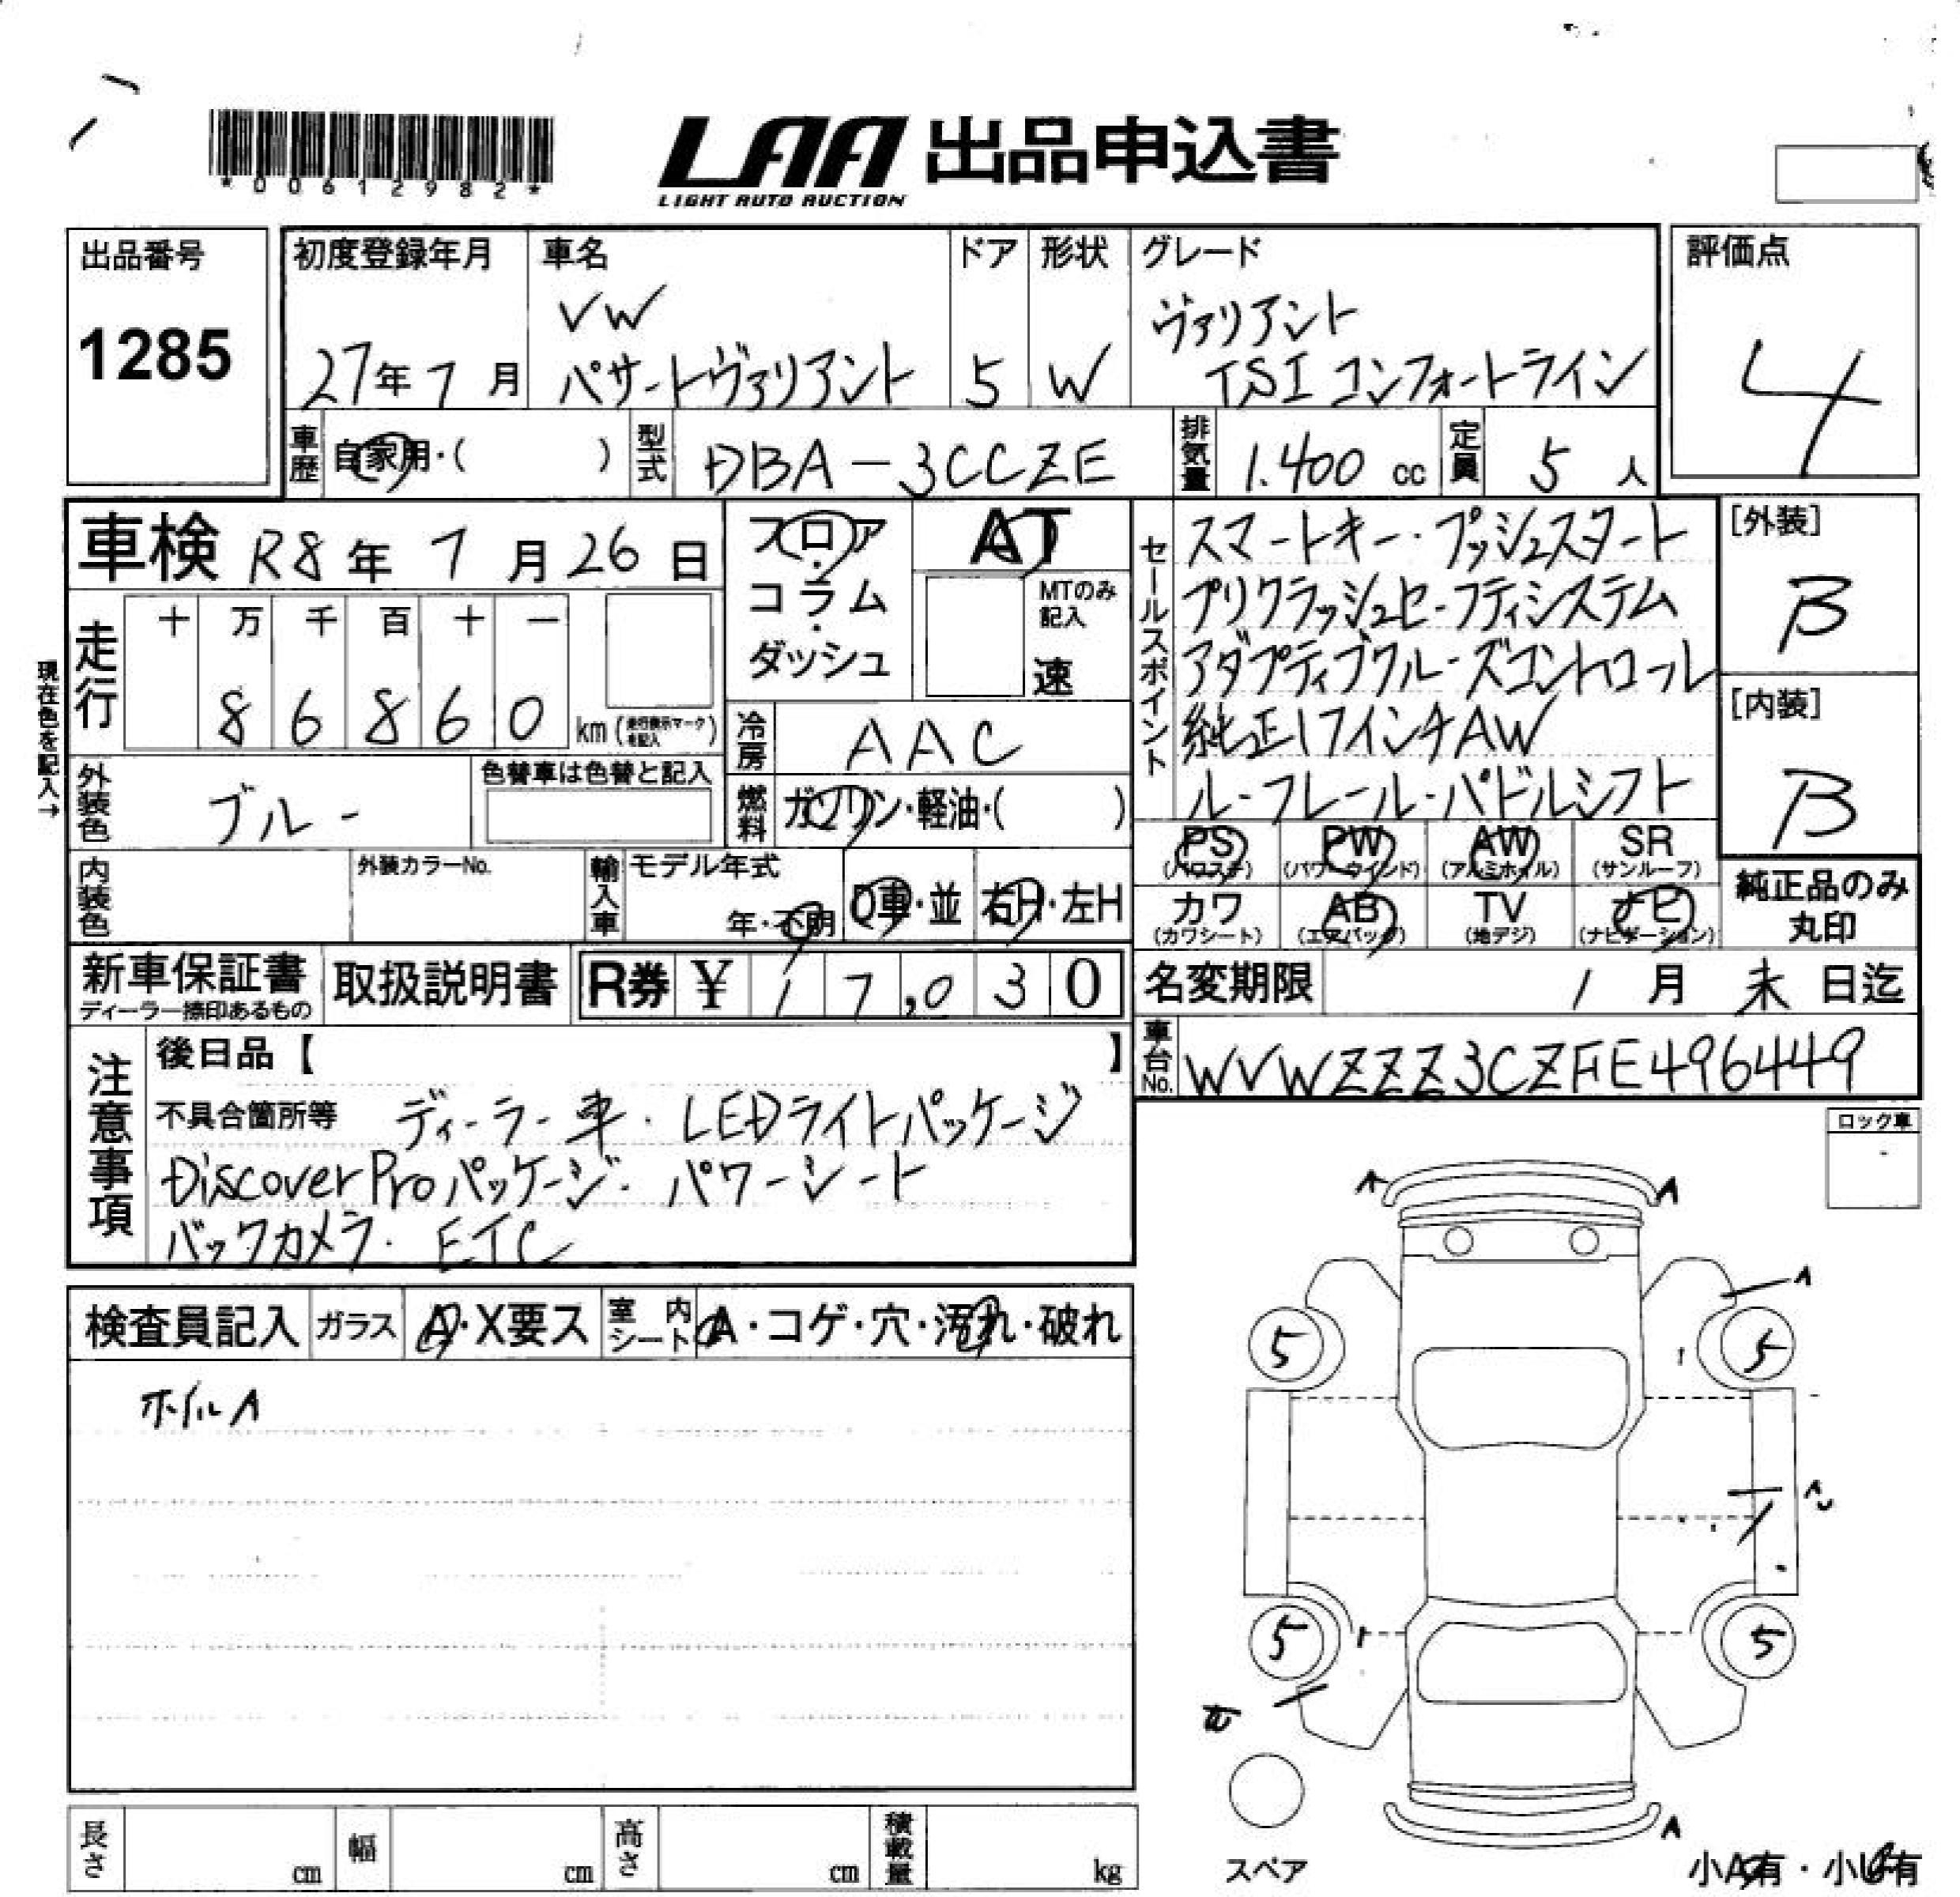 *00612982*
LAA 出品申込書
LIGHT AUTO AUCTION
出品番号
1285
初度登録年月
27年7月
車名
VW
パサートヴァリアント
ドア
5
形状
W
グレード
ヴァリアント
TSIコンフォートライン
評価点
4
車歴 自家用・( )
型式 DBA-3CCZE
排気量 1.400 cc
定員 5 人
車検 R8年7月26日
フロア・コラム・ダッシュ
AT
MTのみ記入
速
セールスポイント
スマートキー・プッシュスタート
プリクラッシュセーフティシステム
アダプティブクルーズコントロール
純正17インチAW
ルーフレール・パドルシフト
[外装]
B
[内装]
B
現在色を記入→
走行
十 万 千 百 十 一
8 6 8 6 0 km (走行表示マークを記入)
冷房 AAC
外装色 ブルー
色替車は色替と記入
燃料 ガソリン・軽油・( )
内装色
外装カラーNo.
輸入車
モデル年式
年・不明
D車・並
右H・左H
PS (パワステ)
PW (パワーウインド)
AW (アルミホイル)
SR (サンルーフ)
カワ (カワシート)
AB (エアバッグ)
TV (地デジ)
ナビ (ナビゲーション)
純正品のみ丸印
新車保証書
ディーラー捺印あるもの
取扱説明書
R券 ¥ 17,030
名変期限 1月末日迄
車台No. WVWZZZ3CZFE496449
注意事項
後日品【 】
不具合箇所等 ディーラー車・LEDライトパッケージ
DiscoverProパッケージ・パワーシート
バックカメラ・ETC
ロック車
検査員記入
ガラス A・X要ス
室内シート A・コゲ・穴・汚れ・破れ
ホイルA
A A
A
5 5
5 5
A
スペア
小A有・小U有
長さ cm
幅 cm
高さ cm
積載量 kg